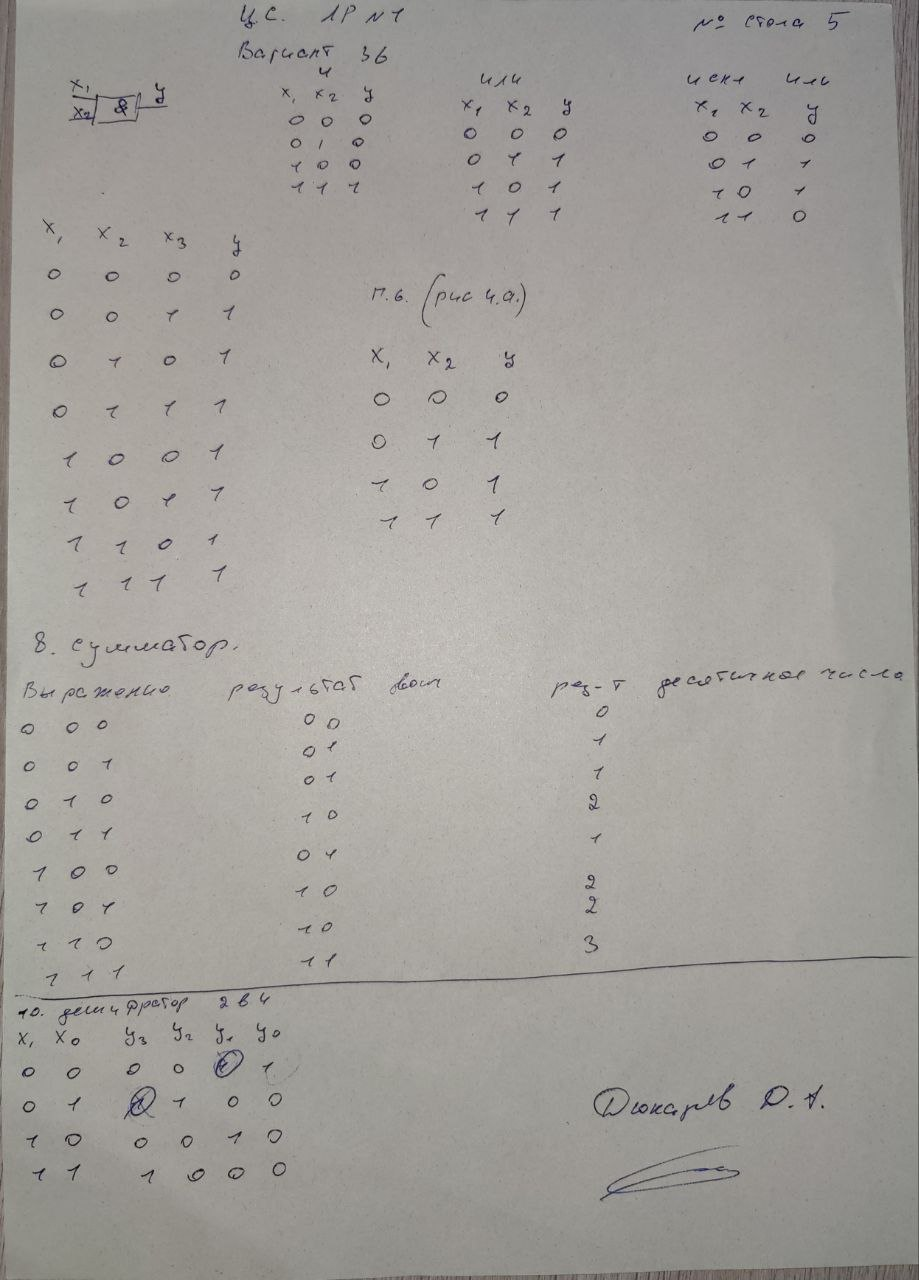 ЦС. ЛР №1 № стола 5
Вариант 36
x₁ x₂ & y
И
x₁ x₂ y
0 0 0
0 1 0
1 0 0
1 1 1
или
x₁ x₂ y
0 0 0
0 1 1
1 0 1
1 1 1
искл или
x₁ x₂ y
0 0 0
0 1 1
1 0 1
1 1 0
x₁ x₂ x₃ y
0 0 0 0
0 0 1 1
0 1 0 1
0 1 1 1
1 0 0 1
1 0 1 1
1 1 0 1
1 1 1 1
п.6. (рис 4.а.)
x₁ x₂ y
0 0 0
0 1 1
1 0 1
1 1 1
8. сумматор.
Выражение результат двоич рез-т десятичное числа
0 0 0 0 0 0
0 0 1 0 1 1
0 1 0 0 1 1
0 1 1 1 0 2
1 0 0 0 1 1
1 0 1 1 0 2
1 1 0 1 0 2
1 1 1 1 1 3
10. дешифратор 2 в 4
x₁ x₀ y₃ y₂ y₁ y₀
0 0 0 0 0 1
0 1 0 1 0 0
1 0 0 0 1 0
1 1 1 0 0 0
Дюкарев Д.А.